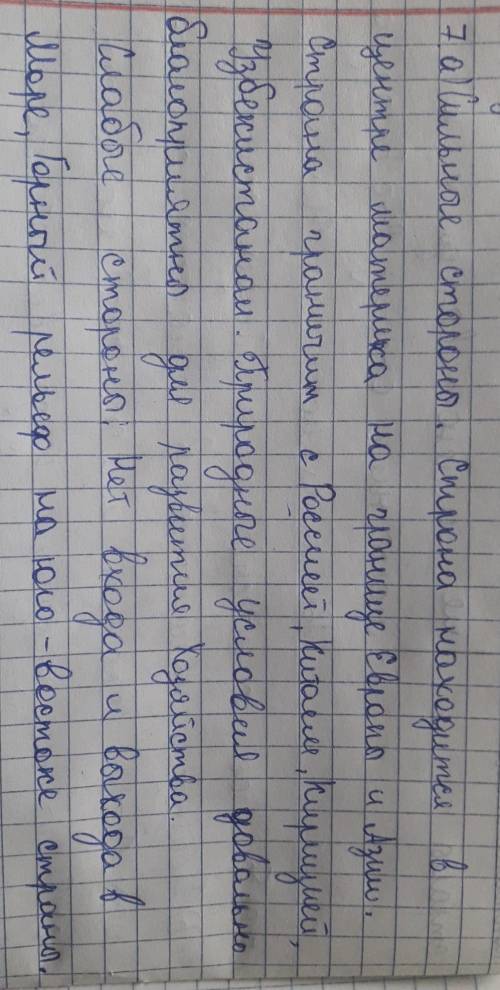 7. а) Сильные стороны. Страна находится в
центре материка на границе Европы и Азии.
Страна граничит с Россией, Китаем, Киргизией,
Узбекистаном. Природные условия довально
благоприятны для развития хозяйства.
Слабые стороны: Нет входа и выхода в
Море, Горный рельеф на юго-востоке страны.